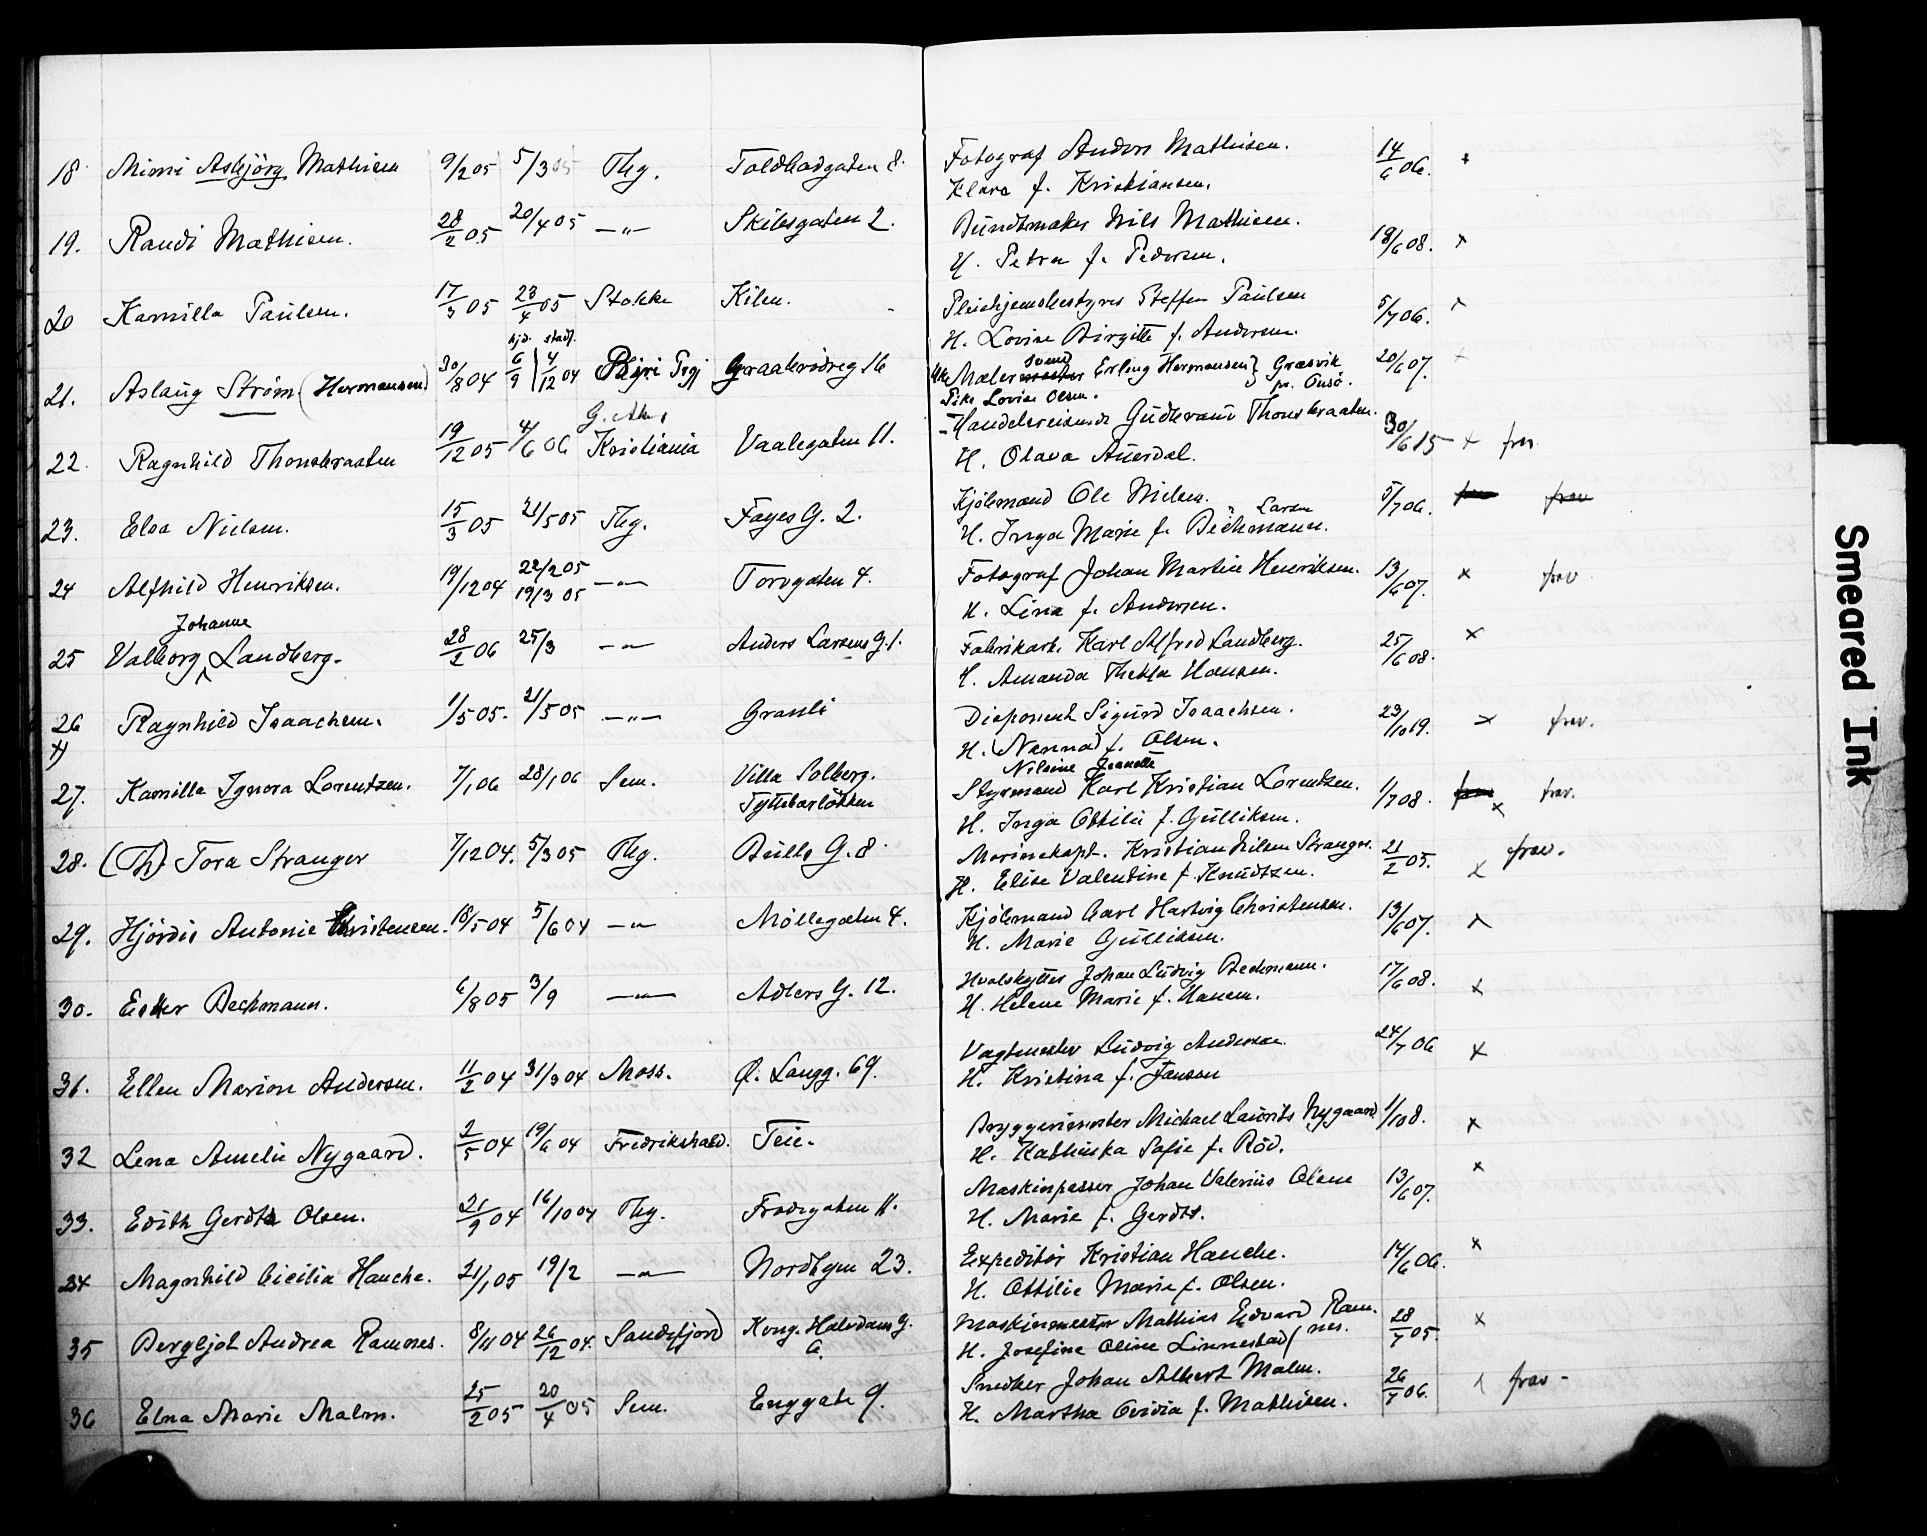 18 Mimi Asbjörg Mathisen 9/2 05 5/3 05 Tbg. Toldbodgaten 8. Fotograf Anders Mathisen. 14/6 06. x
Klara f. Kristiansen.
19. Randi Mathisen. 28/2 05 20/4 05 —"— Skibsgaten 2. Bundtmaker Nils Mathisen. 18/6 08. x
H. Petra f. Pedersen.
20 Kamilla Paulsen. 17/3 05 23/4 05 Stokke Kilen. Pleiehjemsbestyrer Steffen Paulsen 5/7 06. x
H. Lovise Birgitte f. Andersen.
hjd. stadf.
21. Aslaug Ström (Hermansen) 30/8 04 6/9 4/12 04 Graabrödreg 16 Maler svend Erling Hermansen } Græsvik 20/6 07. x
Pike Lovise Olsen. pr. Onsö.
22. Ragnhild Thonsbraaten 19/12 05 4/6 06 Kristiania Vaalegaten 11. Handelsreisende Gudbrand Thonsbraaten. 30/6 15 x frav
H. Olava Auerdal.
23. Elsa Nielsen. 15/3 05 21/5 05 Tbg. Fayes G. 2. Kjöbmand Ole Nielsen. 5/7 06. frav
" Larsen
H. Inga Marie f. Bechmann.
24 Alfhild Henriksen. 19/12 04 22/2 05 —"— Torvgaten 4. Fotograf Johan Martin Henriksen. 13/6 07. x frav
19/3 05 H. Lina f. Andersen.
Johanne
25 Valborg Landberg. 28/2 06 25/3 —"— Anders Larsens G. 1. Fabrikarb. Karl Alfred Landberg. 25/6 08. x
H. Amanda Thekla Hansen.
26 Ragnhild Isaachsen. 1/5 05. 21/5 05 —"— Granli Disponent Sigurd Isaachsen. 23/10 19. x frav.
H. (Nanna) f. Olsen.
Nilsine Jeanette
27. Kamilla Ignora Lorentzen. 7/1 06 28/1 06 Sem. Villa Solberg. Styrmand Karl Kristian Lorentzen. 1/7 08. x frav.
Tyttebærlökken H. Inga Ottilie f. Gulliksen.
28. (Th) Tora Stranger 7/12 04. 5/3 05 Tbg. Bulls G. 8. Marinekapt. Kristian Nilsen Stranger. 21/2 05. x frav.
H. Elise Valentine f. Knudtzen.
29. Hjördis Antonie Christensen. 18/5 04 5/6 04 —"— Möllegaten 4. Kjöbmand Carl Hartvig Christensen. 13/6 07. x
H. Marie Gulliksen.
30. Esther Bechmann. 6/8 05 3/9 —"— Adlers G. 12. Hvalskytter Johan Ludvig Bechmann. 17/6 08. x
H. Helene Marie f. Hansen.
31. Ellen Marion Andersen. 11/2 04 31/3 04 Moss. Ö. Langg. 69. Vagtmester Ludvig Andersen 24/7 06 x
H. Kristina f. Janson
32 Lena Amelie Nygaard. 2/5 04 19/6 04 Fredrikshald. Teie. Bryggerimester Michael Laurits Nygaard 1/1 08. x
H. Kathinka Sofie f. Röd.
33. Edith Gerdts Olsen. 21/9 04 16/10 04 Tbg. Frodegaten 11. Maskinpasser Johan Valerius Olsen 13/6 07. x
H. Marie f. Gerdts.
34 Magnhild Cicilia Hauche. 21/1 05 19/2 —"— Nordbyen 23. Expeditör Kristian Hauche. 14/6 06. x
H. Ottilie Marie f. Olsen.
35 Bergljot Andrea Ramnes. 8/11 04 26/12 04. Sandefjord Kong. Halvdans G. 6. Maskinmester Mathias Edvard Ramnes. 28/7 05. x
H. Josefine Oline Linnestad
36 Elna Marie Malm. 25/2 05 20/4 05 Sem. Enggate 9. Snedker Johan Albert Malm. 26/7 06. x frav -
H. Martha Ovidia f. Mathisen.
Smeared Ink